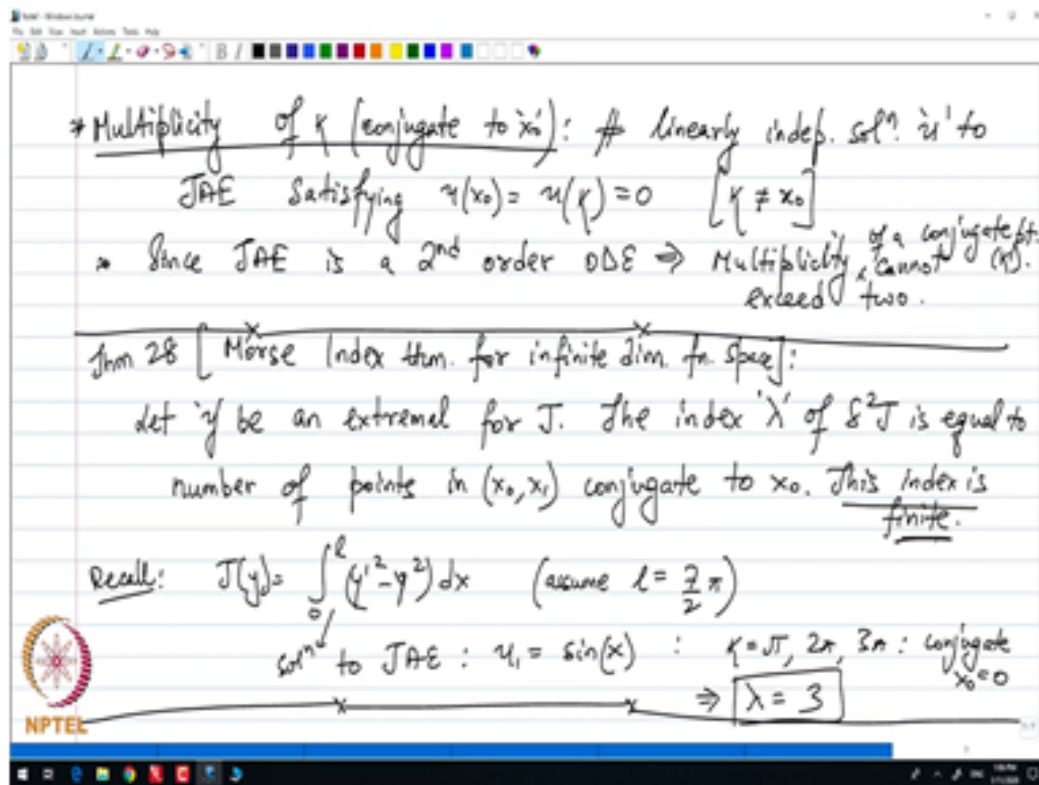 Note1 - Windows Journal
File Edit View Insert Actions Tools Help
* Multiplicity of κ (conjugate to 'x₀'): # linearly indep. solⁿ. 'u' to
JAE satisfying u(x₀) = u(κ) = 0 [κ ≠ x₀]
* Since JAE is a 2nd order ODE ⇒ Multiplicity of a conjugate pt. (κ) cannot
exceed two.
Thm 28 [Morse Index thm. for infinite dim. fn. space]:
Let 'y' be an extremal for J. The index 'λ' of δ²J is equal to
number of points in (x₀, x₁) conjugate to x₀. This index is
finite.
Recall: J(y) = ∫₀^l (y'² - y²) dx (assume l = 7/2 π)
solⁿ to JAE : u₁ = sin(x) : κ = π, 2π, 3π : conjugate
x₀ = 0
⇒ λ = 3
NPTEL